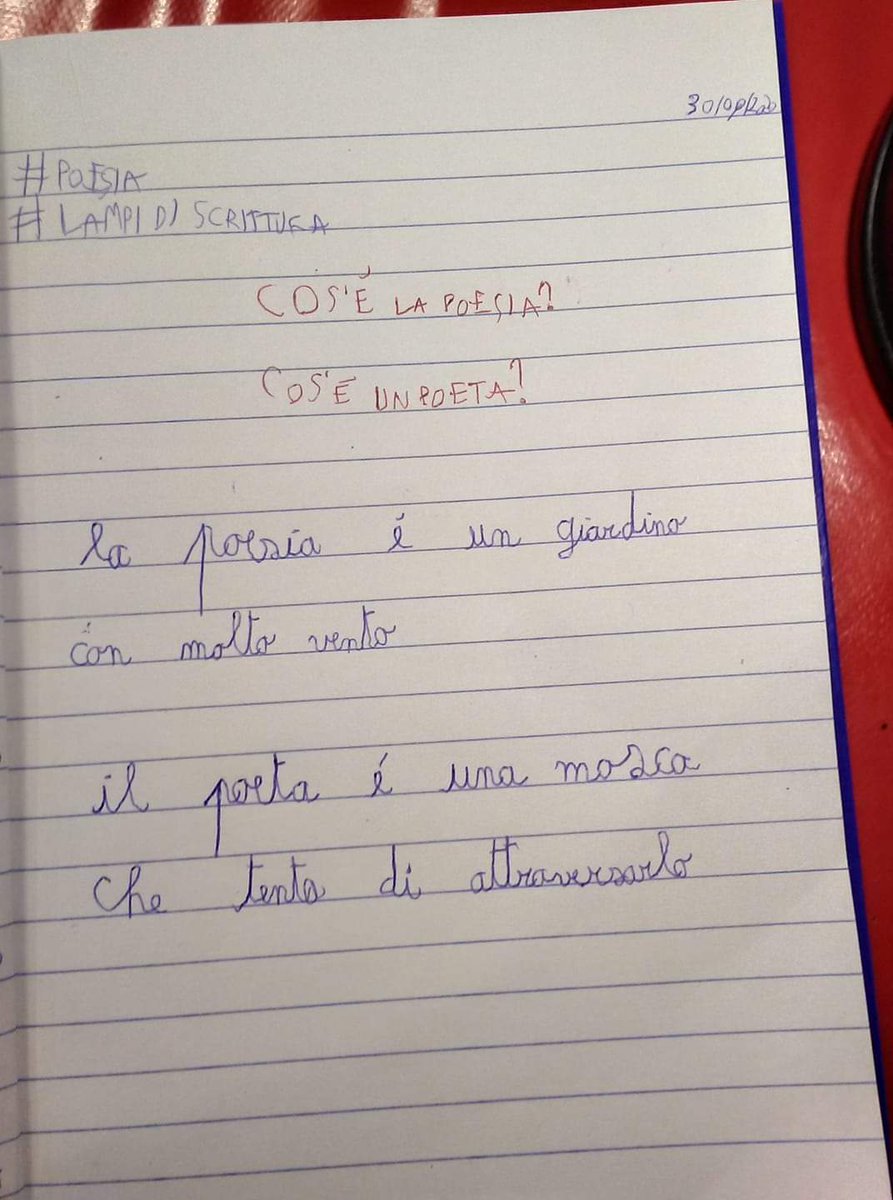 #POESIA
#LAMPI DI SCRITTURA
COS'É LA POESIA?
COS'É UN POETA?
la poesia é un giardino
con molto vento
il poeta é una mosca
che tenta di attraversarlo